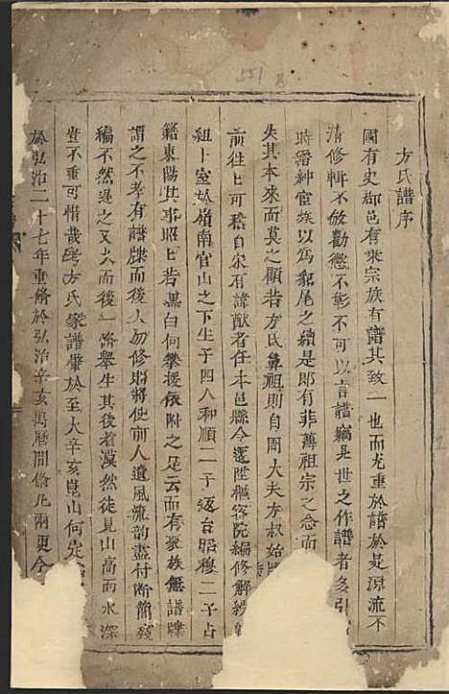 方氏譜序
國有史郡邑有乘宗族有譜其致一也而尤重於譜於是源流不
清修輯不敘勸懲不彰不可以言譜竊見世之作譜者多引
時署紳宦族以為貂尾之續是即有菲薄祖宗之念而
失其本來而莫之顧若方氏鼻祖則自周大夫方叔始
前往已可稽自宋有諱猷者任本邑縣令遷陞樞密院編修解綬
祖卜室於嶺南官山之下生子四人和順二子返台昭穆二子占
籍東陽其事昭已若黑白何攀援依附之足云而有豪族無譜牒
謂之不孝有譜牒而後人勿修則將使前人遺風流韵盡付斷簡殘
編不然遲之又久而後一番舉生其後者漠然徒見山高而水深
豈不重可惜哉跨方氏家譜肇於至大辛亥崑山何
於弘治二十七年重脩於弘治辛亥萬曆間脩凡兩更今